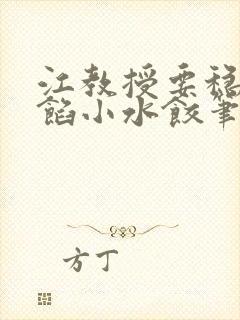 江教授要稳
馅小水饺笔
方丁